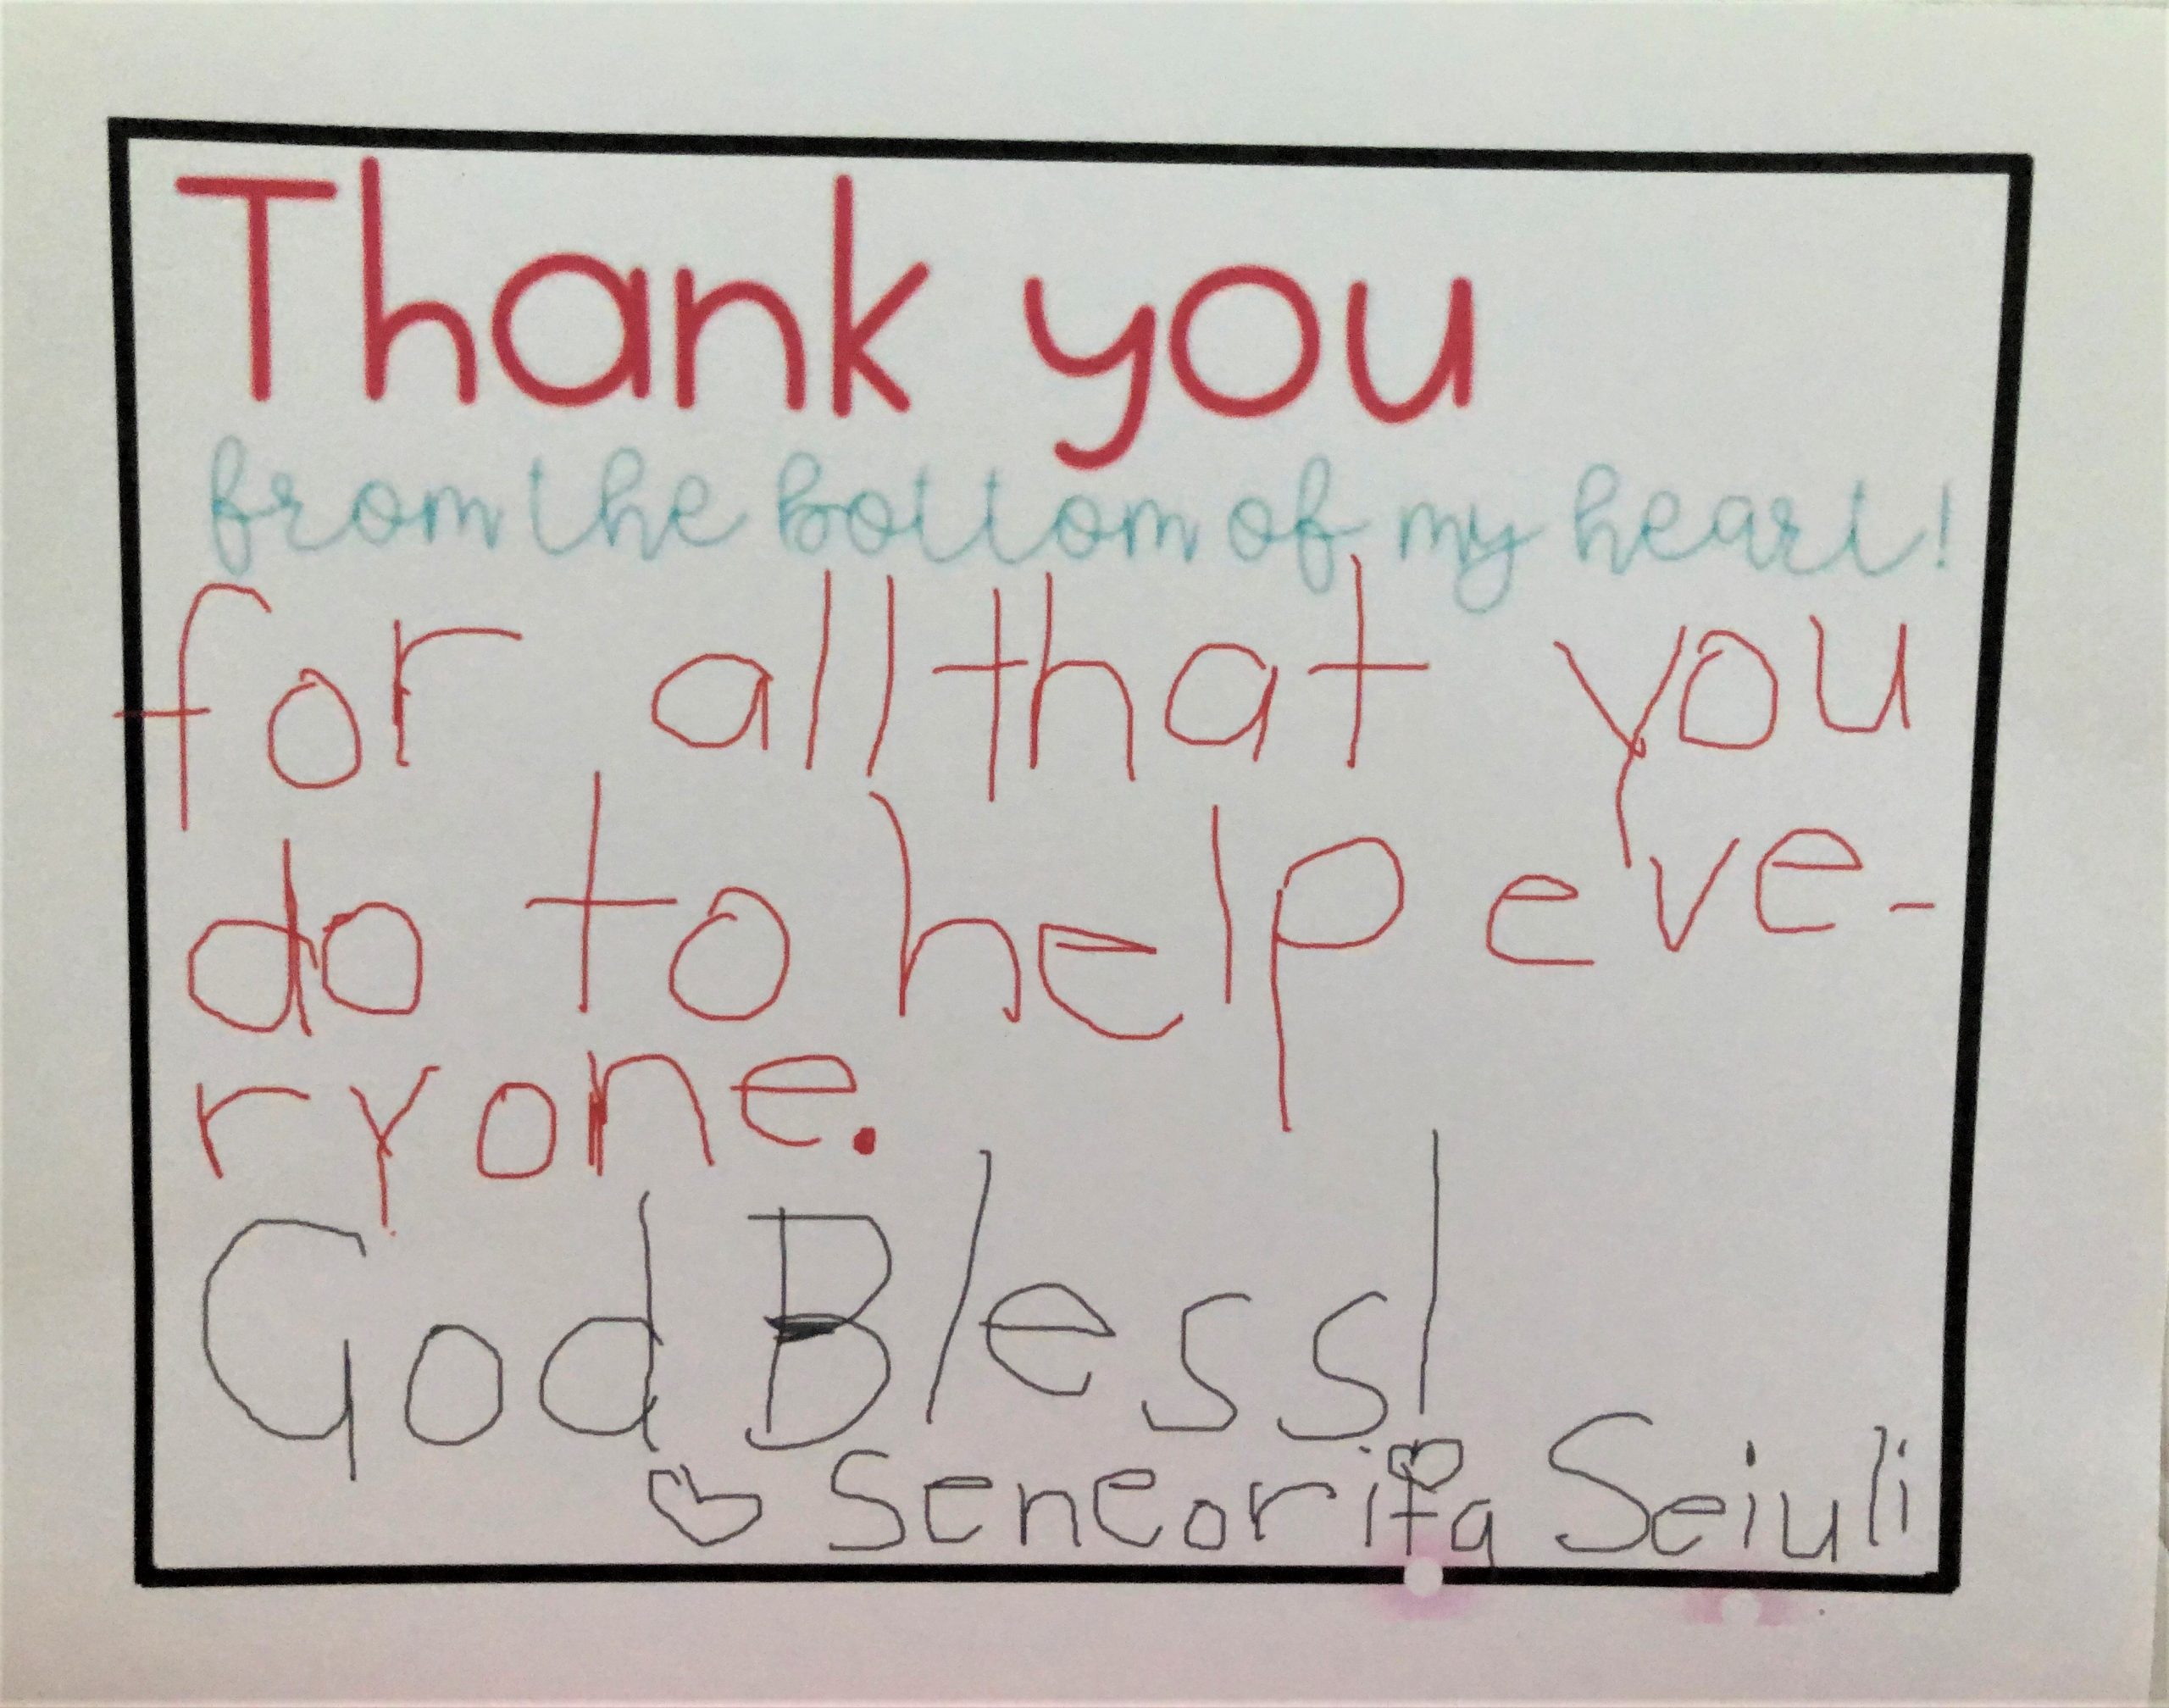 Thank you
from the bottom of my heart!
for all that you
do to help eve-
ryone.
God Bless!
Seneorita Seiuli